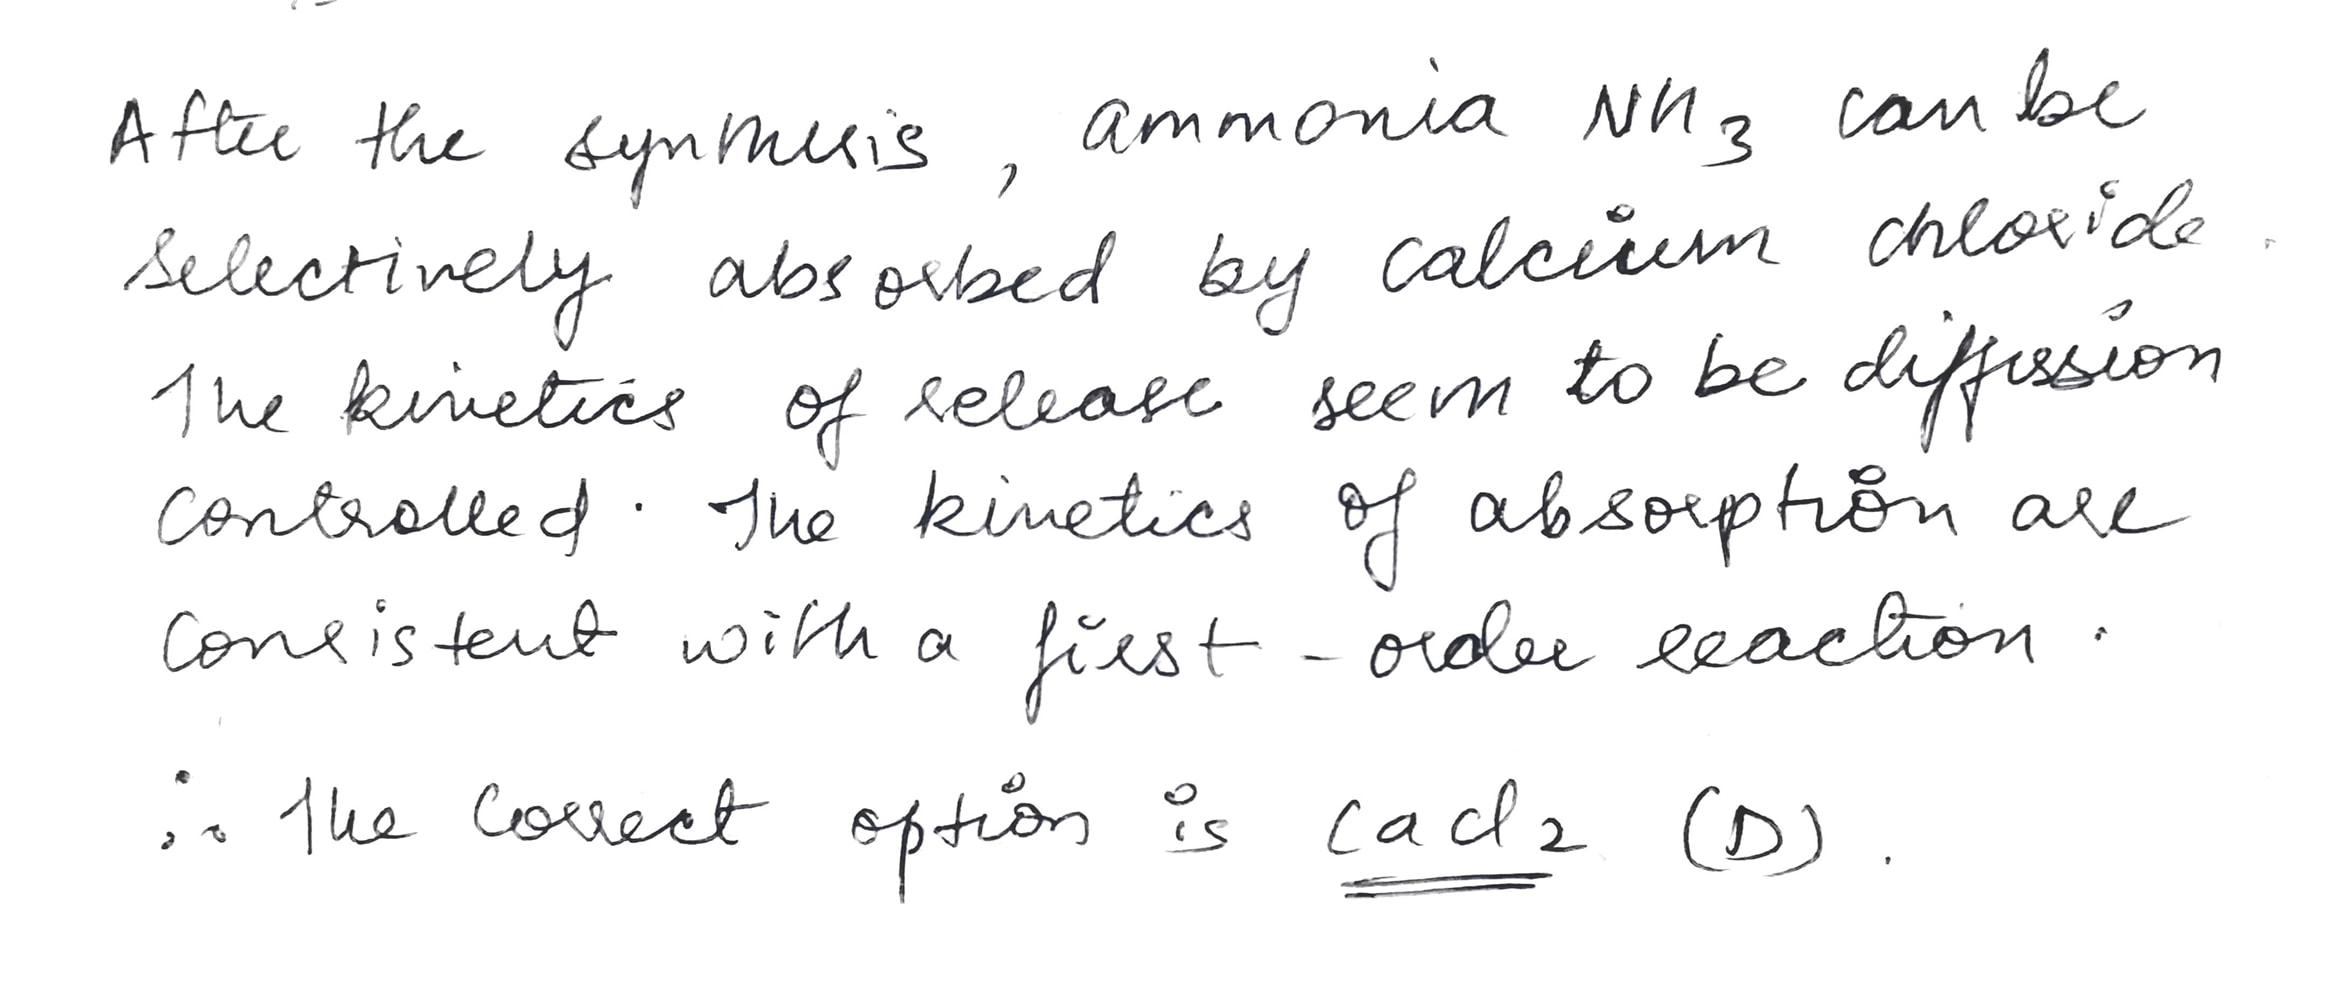 After the synthesis, ammonia NH3 can be
selectively absorbed by calcium chloride.
The kinetics of release seem to be diffusion
controlled. The kinetics of absorption are
consistent with a first-order reaction.
∴ The correct option is CaCl2 (D).